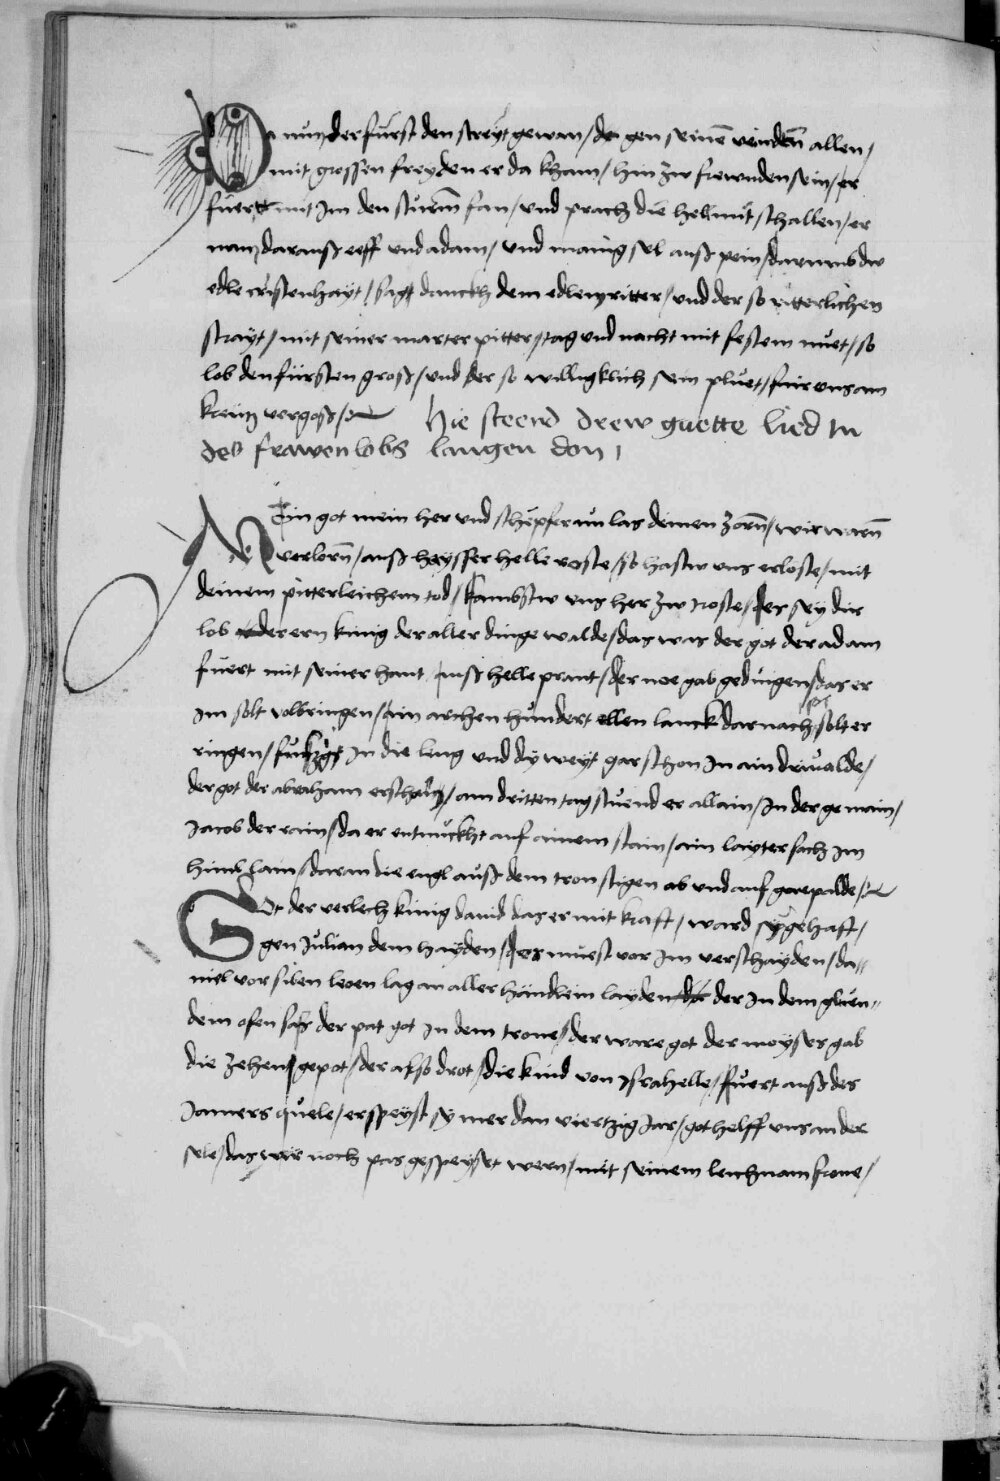 Da nun der furst den streyt gewan / gen seinē veinden allen /
mit grossen freyden er da kham / hin zw frewnden sein / er
fuert mit Im den sturm fan / vnd prach die hell mit schallen / er
nam darauß eeff vnd adam / vnd manig sel auß pein / darumb dw
edle cristenhayt / sag danckh dem edlen ritter / vnd der so ritterlichen
strayt / mit seiner marter pitter / tag vnd nacht mit festem muet / so
lob den fürsten groß / vnd der so willigklich sein pluet / fur vns am
kreutz vergoß /
hie steend drew guette lied In
des frawenlobs langen don /
Mein got mein her vnd schepfer nun las deinen zorn / wir warn
verlorn / auß haysser helle roste / so hastw vns erloste / mit
deinem pitterleichem tod / kambstw vns her zw troste / des sey dir
lob der ern kunig der aller dinge walde / das was der got der adam
fuert mit seiner hant auß helle prant / der noe gab gedingen / das er
Im solt volbringen / ain archen hundert ellen lanck darnach solt er
ringen / funfzig In die leng vnd dy weyt gar schon In ain driualde /
der got der abraham erschain / am dritten tag stuend er allain / In der gemain /
Jacob der rain / da er entnuckht auf ainem stain / ain layter sach Im
himl lain / daran die engl auß dem tron stigen ab vnd auf gar palde /
Got der verlech kunig dauid das er mit kraft / ward sighaft /
gen Julian dem hayden / der muest vor Im verschayden / da=
niel vor siben leoen lag an aller händlein layden der In dem gluen=
dem ofen saß der pat got In dem trone / der ware got der moyses gab
die zehen gepot / der also drot / die kind von Israhelle / fuert auß des
Jamers quele / er speyst sy mer dan viertzig Jar / got helff vns an der
sele / das wir noch pas gespeyset wern / mit seinem leichnam frone /